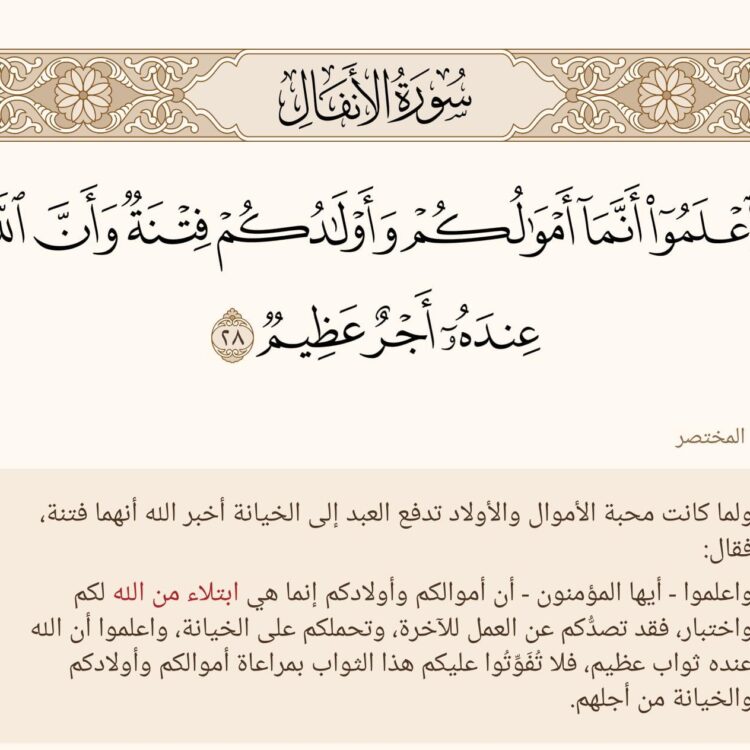 سُورَةُ الأَنفَالِ
أَنَّمَآ أَمْوَٰلُكُمْ وَأَوْلَٰدُكُمْ فِتْنَةٌ وَأَنَّ
عِندَهُۥٓ أَجْرٌ عَظِيمٌ ٢٨
المختصر
ولما كانت محبة الأموال والأولاد تدفع العبد إلى الخيانة أخبر الله أنهما فتنة،
فقال:
واعلموا - أيها المؤمنون - أن أموالكم وأولادكم إنما هي ابتلاء من الله لكم
واختبار، فقد تصدُّكم عن العمل للآخرة، وتحملكم على الخيانة، واعلموا أن الله
عنده ثواب عظيم، فلا تُفَوِّتُوا عليكم هذا الثواب بمراعاة أموالكم وأولادكم
والخيانة من أجلهم.